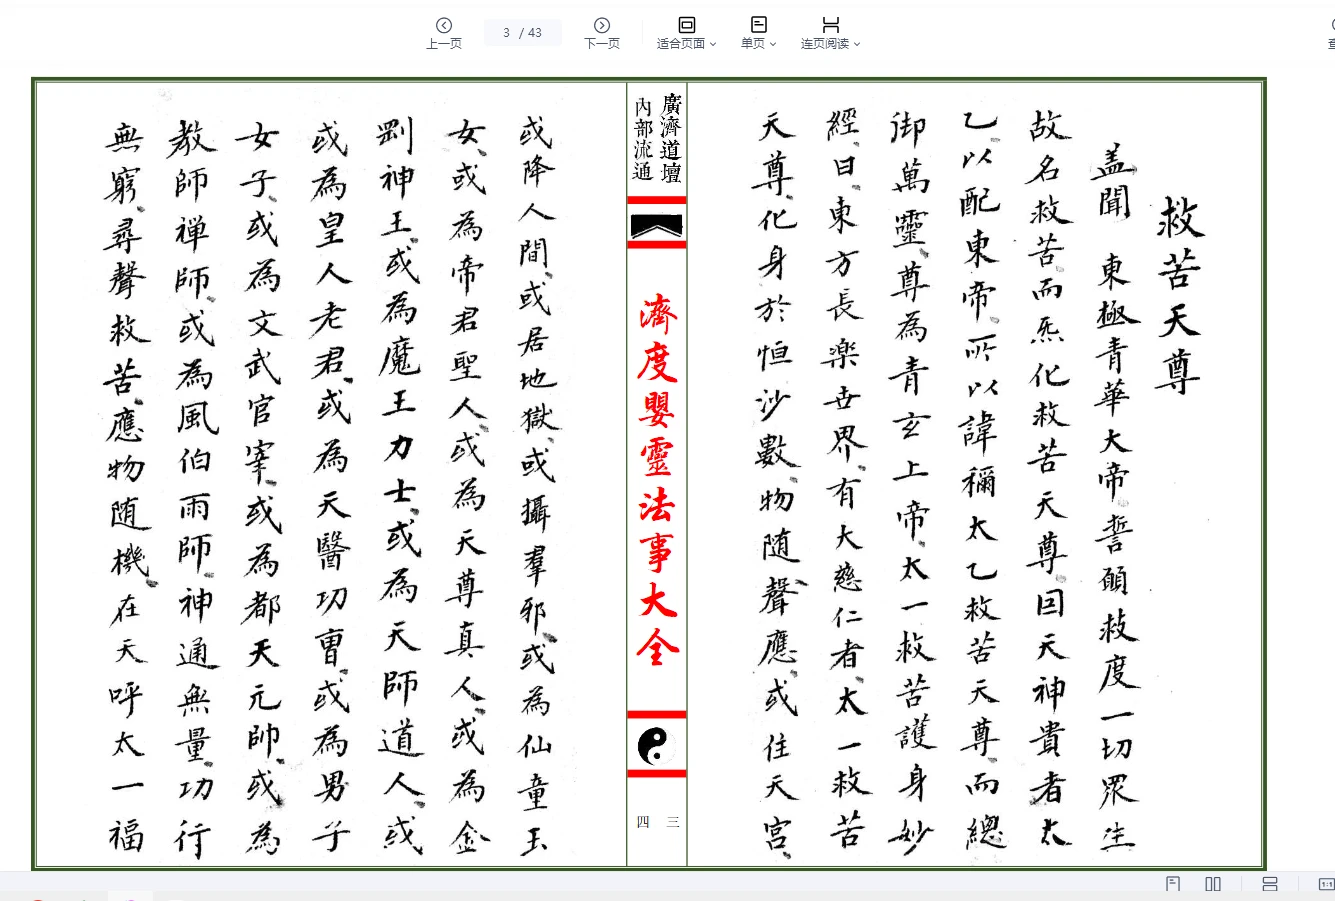 上一页
3 / 43
下一页
适合页面
单页
连页阅读
救苦天尊
盖聞 東極青華大帝誓願救度一切眾生
故名救苦而炁化救苦天尊因天神貴者太
乙以配東帝所以諱稱太乙救苦天尊而總
御萬靈尊為青玄上帝太一救苦護身妙
經曰東方長楽世界有大慈仁者太一救苦
天尊化身於恒沙數物随聲應或住天宫
廣濟道壇
內部流通
濟度嬰靈法事大全
三
四
或降人間或居地獄或攝羣邪或為仙童玉
女或為帝君聖人或為天尊真人或為金
剛神王或為魔王力士或為天師道人或
或為皇人老君或為天醫功曹或為男子
女子或為文武官宰或為都天元帥或為
教師禅師或為風伯雨師神通無量功行
無窮尋聲救苦應物随機在天呼太一福
1:1